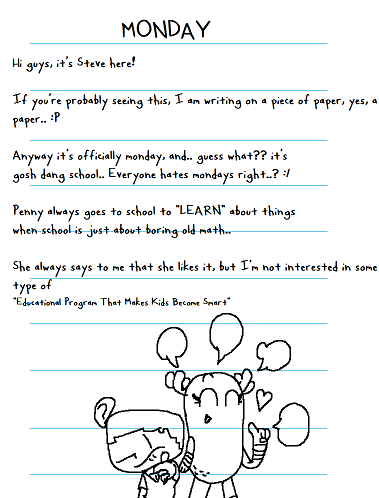 MONDAY
Hi guys, it's Steve here!
If you're probably seeing this, I am writing on a piece of paper, yes, a
paper.. :P
Anyway it's officially monday, and.. guess what?? it's
gosh dang school.. Everyone hates mondays right..? :/
Penny always goes to school to "LEARN" about things
when school is just about boring old math..
She always says to me that she likes it, but I'm not interested in some
type of
"Educational Program That Makes Kids Become Smart"